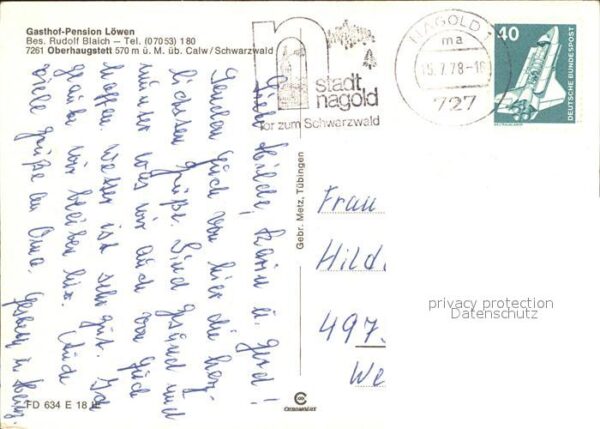 Gasthof-Pension Löwen
Bes. Rudolf Blaich – Tel. (07053) 180
7261 Oberhaugstett 570 m ü. M. üb. Calw/Schwarzwald
n
stadt
nagold
Tor zum Schwarzwald
NAGOLD 1
ma
15.7.78-18
727
40
DEUTSCHE BUNDESPOST
Liebe Hilde, Karin u. Gerd!
Senden Euch von hier die herz-
lichsten Grüße. Sind gesund und
munter was wir auch von Euch
hoffen. Wetter ist sehr gut. Ich
glaube wir bleiben hier. Auch
viele Grüße an Oma.
Gebr. Metz, Tübingen
Frau
Hild
497
We
privacy protection
Datenschutz
FD 634 E 18 H